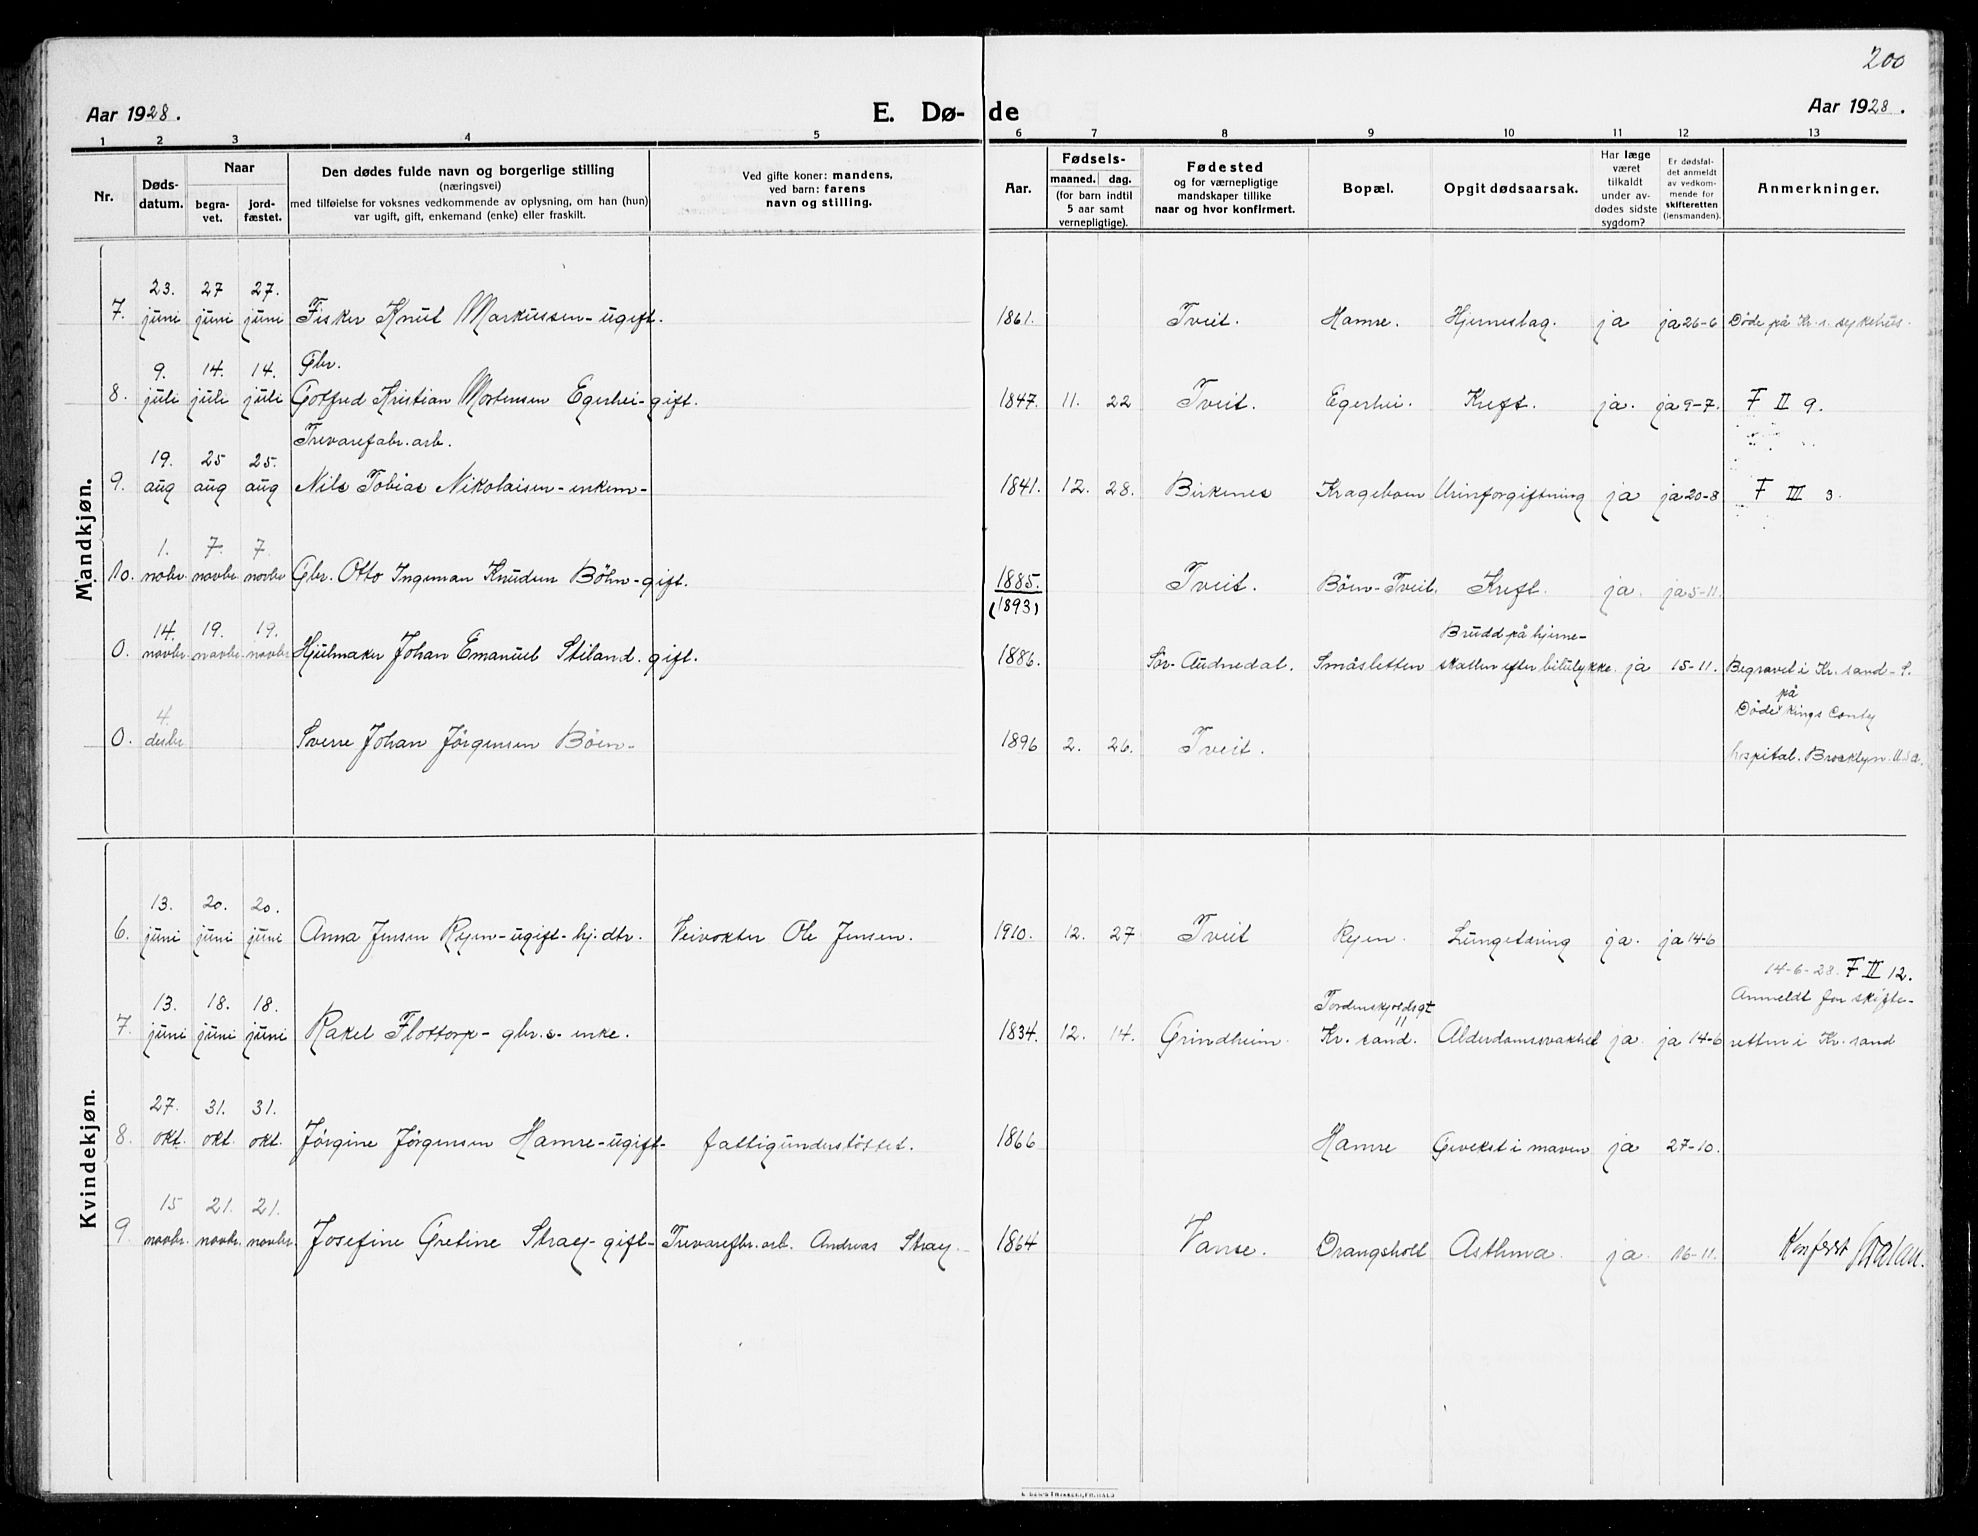 200
Aar 1928.
E. Dø-de
Aar 1928.
1 2 3 4 5 6 7 8 9 10 11 12 13
Nr.
Døds-
datum.
Naar
begra-
vet.
jord-
fæstet.
Den dødes fulde navn og borgerlige stilling
(næringsvei)
med tilføielse for voksnes vedkommende av oplysning, om han (hun)
var ugift, gift, enkemand (enke) eller fraskilt.
Ved gifte koner: mandens,
ved barn: farens
navn og stilling.
Aar.
Fødsels-
maaned. dag.
(for barn indtil
5 aar samt
vernepligtige).
Fødested
og for værnepligtige
mandskaper tillike
naar og hvor konfirmert.
Bopæl.
Opgit dødsaarsak.
Har læge
været
tilkaldt
under av-
dødes sidste
sygdom?
Er dødsfal-
det anmeldt
av vedkom-
mende for
skifteretten
(lensmanden).
Anmerkninger.
Mandkjøn.
23. 27 27.
7. juni juni juni Fisker Knut Markussen - ugift. 1861. Tveit. Hamre. Hjerneslag. ja ja 26-6 Døde på Kr. s. sykehus.
9. 14. 14. Gbr.
8. juli juli juli Gotfred Kristian Mortensen Egerhei - gift. 1847. 11. 22 Tveit. Egerhei. Kreft. ja. ja 9-7. F II 9.
Trevarefabr. arb.
19. 25 25.
9. aug aug aug Nils Tobias Nikolaisen - enkem - 1841. 12. 28. Birkenes Krageboen Urinforgiftning ja ja 20-8 F III 3.
1. 7. 7.
10. nobr. novbr. novbr Gbr. Otto Ingeman Knudsen Böhn - gift. 1885. Tveit. Böen - Tveit. Kreft. ja. ja 5-11.
(1893)
14. 19. 19. Brudd på hjerne-
0. novbr. novbr. novbr Hjulmaker Johan Emanuel Stiland. gift. 1886. Sör-Audnedal. Småsletten skallen efter bilulykke. ja 15-11. Begravet i Kr. sand - S.
på
4. Döde Kings Conty
0. desbr Sverre Johan Jörgensen Böen - 1896 2. 26. Tveit. hospital. Brooklyn. U.S.A.
Kvindekjøn.
13. 20. 20.
6. juni juni juni Anna Jensen Ryen - ugift - hj. dtr. Veivokter Ole Jensen. 1910. 12. 27 Tveit Ryen. Lungetæring ja. ja 14-6
14-6-28. F II 12.
13. 18. 18. Tordenskjoldsgt 11 Anmeldt for skifte-
7. juni juni juni Rakel Flottorp - gbr. s. enke. 1834. 12. 14. Grindheim. Kr. sand. Alderdomssvakhet ja. ja 14-6 retten i Kr. sand
27. 31. 31.
8. okt. okt. okt. Jörgine Jörgensen Hamre - ugift - fattigunderstöttet. 1866 Hamre Gevekst i maven ja 27-10.
15 21. 21.
9. novbr. novbr. novbr. Josefine Gretine Stray - gift - Trevarefbr. arb. Andreas Stray. 1864 Vanse. Drangsholt Asthma. ja. 16-11. Konferert